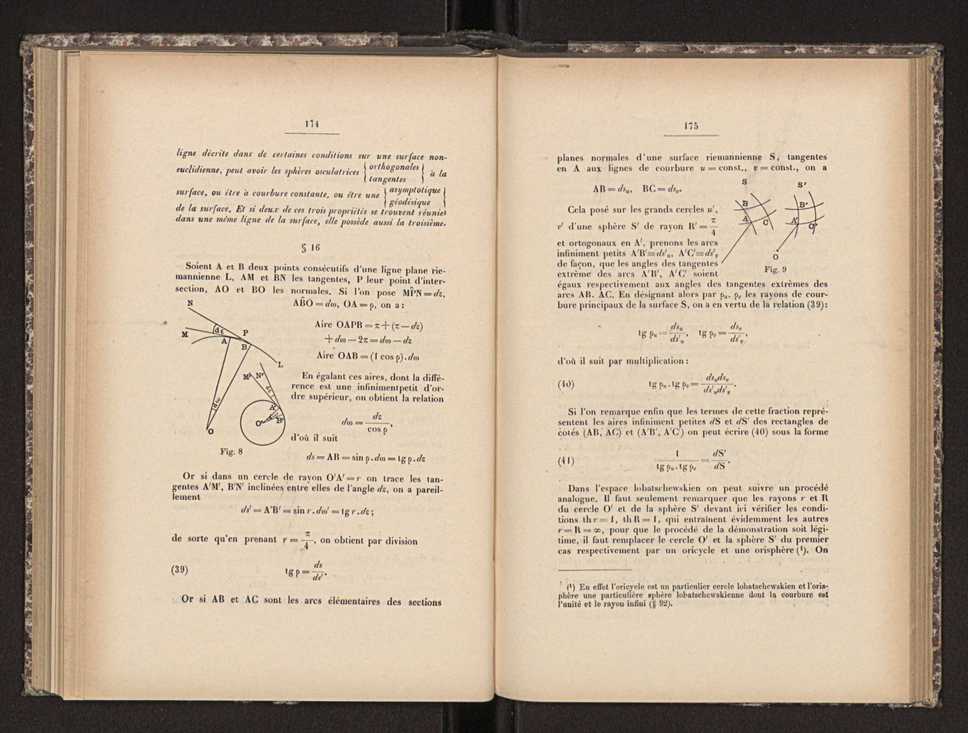 174
ligne décrite dans de certaines conditions sur une surface non-
euclidienne, peut avoir les sphères osculatrices { orthogonales / tangentes } à la
surface, ou être à courbure constante, ou être une { asymptotique / géodésique }
de la surface. Et si deux de ces trois propriétés se trouvent réunies
dans une même ligne de la surface, elle possède aussi la troisième.
§ 16
Soient A et B deux points consécutifs d'une ligne plane rie-
mannienne L, AM et BN les tangentes, P leur point d'inter-
section, AO et BO les normales. Si l'on pose MP̂N = dε,
AB̂O = dω, OA = ρ, on a :
Aire OAPB = π + (π — dε)
+ dω — 2π = dω — dε
Aire OAB = (1 cos ρ). dω
En égalant ces aires, dont la diffé-
rence est une infinimentpetit d'or-
dre supérieur, on obtient la relation
dω = dε / cos ρ,
d'où il suit
N
M
dε
P
A
B
L
M' N'
dω
A'
O'
O
Fig. 8
ds = AB = sin ρ. dω = tg ρ. dε
Or si dans un cercle de rayon O'A' = r on trace les tan-
gentes A'M', B'N' inclinées entre elles de l'angle dε, on a pareil-
lement
ds' = A'B' = sin r. dω' = tg r. dε ;
de sorte qu'en prenant r = π/4, on obtient par division
(39) tg ρ = ds / ds'.
Or si AB et AC sont les arcs élémentaires des sections
175
planes normales d'une surface riemannienne S, tangentes
en A aux lignes de courbure u = const., v = const., on a
AB = dsᵤ, BC = dsᵥ.
Cela posé sur les grands cercles u',
v' d'une sphère S' de rayon R' = π/4
et ortogonaux en A', prenons les arcs
infiniment petits A'B' = ds'ᵤ, A'C' = ds'ᵥ
de façon, que les angles des tangentes
extrême des arcs A'B', A'C' soient
S
S'
B
A
C
B'
A'
C'
O
Fig. 9
égaux respectivement aux angles des tangentes extrêmes des
arcs AB. AC. En désignant alors par ρᵤ, ρᵥ les rayons de cour-
bure principaux de la surface S, on a en vertu de la relation (39) :
tg ρᵤ = dsᵤ / ds'ᵤ, tg ρᵥ = dsᵥ / ds'ᵥ,
d'où il suit par multiplication :
(40) tg ρᵤ. tg ρᵥ = dsᵤdsᵥ / ds'ᵤds'ᵥ.
Si l'on remarque enfin que les termes de cette fraction repré-
sentent les aires infiniment petites dS et dS' des rectangles de
cotés (AB, AC) et (A'B', A'C') on peut écrire (40) sous la forme
(41) 1 / tg ρᵤ. tg ρᵥ = dS' / dS.
Dans l'espace lobatschewskien on peut suivre un procédé
analogue. Il faut seulement remarquer que les rayons r et R
du cercle O' et de la sphère S' devant ici vérifier les condi-
tions th r = 1, th R = 1, qui entraînent évidemment les autres
r = R = ∞, pour que le procédé de la démonstration soit légi-
time, il faut remplacer le cercle O' et la sphère S' du premier
cas respectivement par un oricycle et une orisphère (¹). On
(¹) En effet l'oricycle est un particulier cercle lobatschewskien et l'oris-
phère une particulière sphère lobatschewskienne dont la courbure est
l'unité et le rayon infini (§ 92).